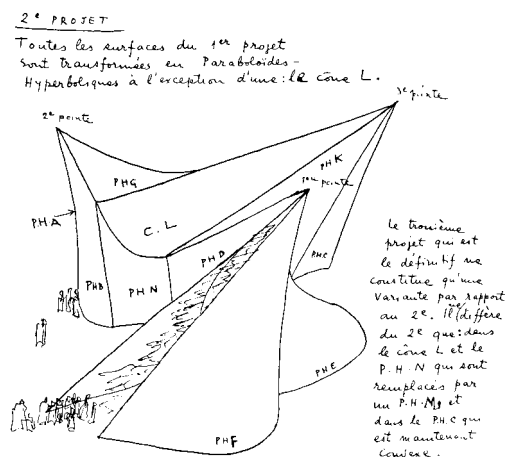 2e PROJET
Toutes les surfaces du 1er projet
sont transformées en Paraboloïdes-
Hyperboliques à l'exception d'une: le cône L.
3e pointe
2e pointe
PHK
1ere pointe
PHG
PHA
C.L
PHD
PHC
PHB
PHN
PHE
PHF
Le troisième
projet qui est
le définitif ne
constitue qu'une
variante par rapport
au 2e. Il ne diffère
du 2e que: dans
le cône L et le
P.H.N qui sont
remplacés par
un P.H.M, et
dans le P.H.C qui
est maintenant
convexe.